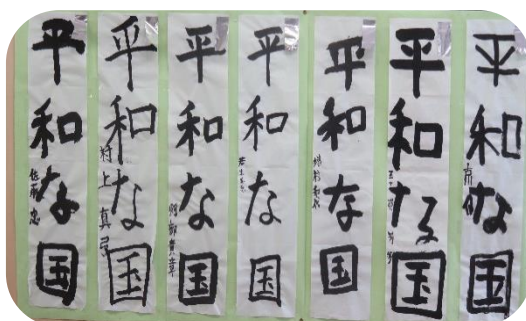 平和な国
平和な国
村上真弓
平和な国
平和な国
平和な国
平和な国
平和な国
佐藤忠